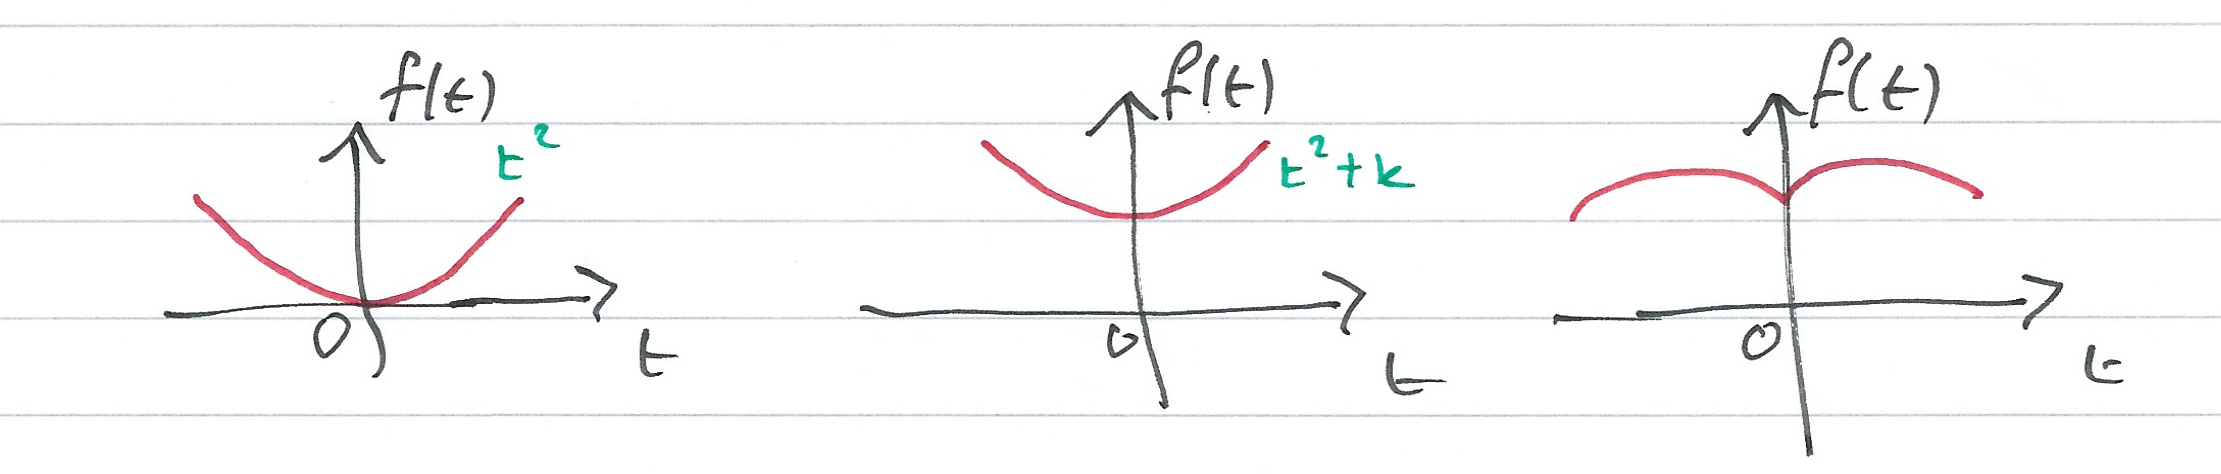 f(t) t²
0 t
f(t) t²+k
0 t
f(t)
0 t